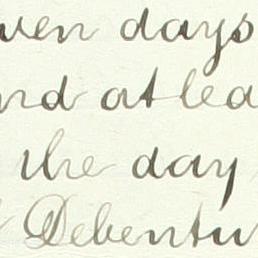 ven days
nd at lea
the day
Debentu